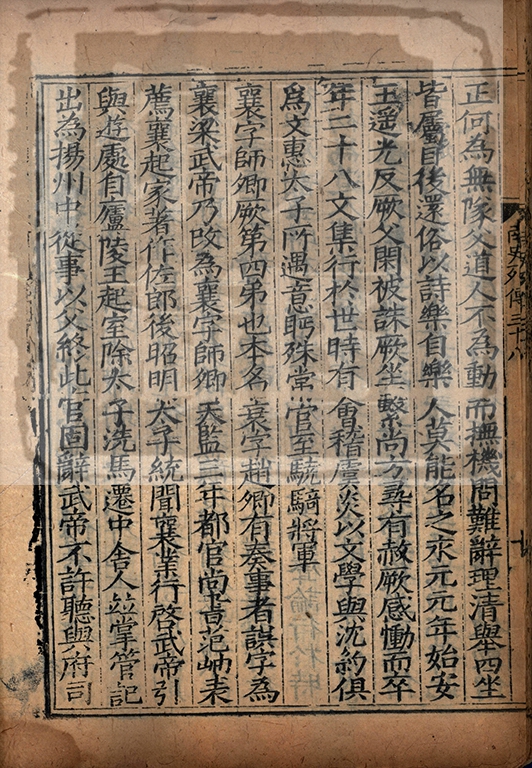 正何為無隊父道人不為動而撫機問難辭理清舉四坐
皆屬目後還俗以詩樂自樂人莫能名之永元元年始安
王遥光反厥父閑被誅厥坐繫尚方尋有赦厥感慟而卒
年二十八文集行於世時有會稽虞炎以文學與沈約俱
爲文惠太子所遇意眄殊常官至驍騎將軍
襄字師卿厥第四弟也本名衰字趙卿有奏事者誤字為
襄梁武帝乃改為襄字師卿天監三年都官尚書范岫表
薦襄起家著作佐郎後昭明太子統聞襄業行啓武帝引
與遊處自廬陵王起室除太子洗馬遷中舍人並掌管記
出為揚州中從事以父終此官固辭武帝不許聽與府司
南史列傳三十八